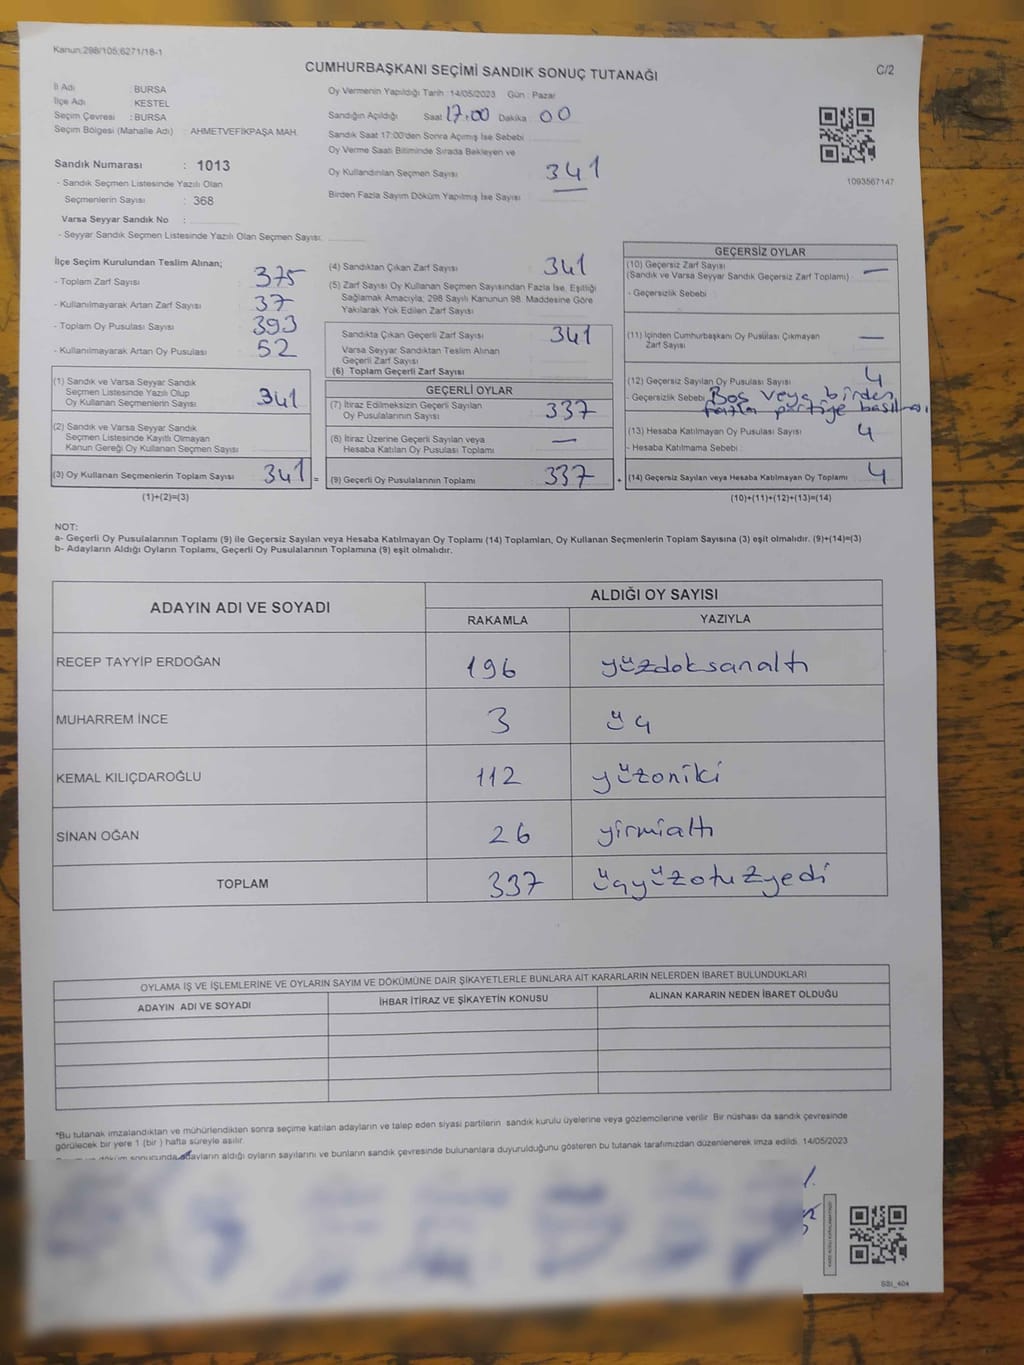 Kanun:298/105;6271/18-1
CUMHURBAŞKANI SEÇİMİ SANDIK SONUÇ TUTANAĞI
C/2
İl Adı : BURSA
İlçe Adı KESTEL
Seçim Çevresi : BURSA
Seçim Bölgesi (Mahalle Adı) : AHMETVEFİKPAŞA MAH.
Oy Vermenin Yapıldığı Tarih :14/05/2023 Gün : Pazar
Sandığın Açıldığı Saat 17:00 Dakika : 00
Sandık Saat 17:00'den Sonra Açımış İse Sebebi
Oy Verme Saati Bitiminde Sırada Bekleyen ve
Oy Kullandırılan Seçmen Sayısı 341
Birden Fazla Sayım Döküm Yapılmış İse Sayısı
1093567147
Sandık Numarası : 1013
- Sandık Seçmen Listesinde Yazılı Olan
Seçmenlerin Sayısı : 368
Varsa Seyyar Sandık No :
- Seyyar Sandık Seçmen Listesinde Yazılı Olan Seçmen Sayısı:
İlçe Seçim Kurulundan Teslim Alınan;
- Toplam Zarf Sayısı 375
- Kullanılmayarak Artan Zarf Sayısı 37
- Toplam Oy Pusulası Sayısı 393
- Kullanılmayarak Artan Oy Pusulası 52
(1) Sandık ve Varsa Seyyar Sandık
Seçmen Listesinde Yazılı Olup
Oy Kullanan Seçmenlerin Sayısı 341
(2) Sandık ve Varsa Seyyar Sandık
Seçmen Listesinde Kayıtlı Olmayan
Kanun Gereği Oy Kullanan Seçmen Sayısı
(3) Oy Kullanan Seçmenlerin Toplam Sayısı 341 =
(1)+(2)=(3)
(4) Sandıktan Çıkan Zarf Sayısı 341
(5) Zarf Sayısı Oy Kullanan Seçmen Sayısından Fazla İse, Eşitliği
Sağlamak Amacıyla; 298 Sayılı Kanunun 98. Maddesine Göre
Yakılarak Yok Edilen Zarf Sayısı
Sandıkta Çıkan Geçerli Zarf Sayısı 341
Varsa Seyyar Sandıktan Teslim Alınan
Geçerli Zarf Sayısı
(6) Toplam Geçerli Zarf Sayısı
GEÇERLİ OYLAR
(7) İtiraz Edilmeksizin Geçerli Sayılan
Oy Pusulalarının Sayısı 337
(8) İtiraz Üzerine Geçerli Sayılan veya
Hesaba Katılan Oy Pusulası Toplamı —
(9) Geçerli Oy Pusulalarının Toplamı 337 +
GEÇERSİZ OYLAR
(10) Geçersiz Zarf Sayısı
(Sandık ve Varsa Seyyar Sandık Geçersiz Zarf Toplamı) —
- Geçersizlik Sebebi
(11) İçinden Cumhurbaşkanı Oy Pusulası Çıkmayan
Zarf Sayısı —
(12) Geçersiz Sayılan Oy Pusulası Sayısı 4
Geçersizlik Sebebi Boş veya birden
fazla partiye basılması
(13) Hesaba Katılmayan Oy Pusulası Sayısı 4
- Hesaba Katılmama Sebebi
(14) Geçersiz Sayılan veya Hesaba Katılmayan Oy Toplamı 4
(10)+(11)+(12)+(13)=(14)
NOT:
a- Geçerli Oy Pusulalarının Toplamı (9) ile Geçersiz Sayılan veya Hesaba Katılmayan Oy Toplamı (14) Toplamları, Oy Kullanan Seçmenlerin Toplam Sayısına (3) eşit olmalıdır. (9)+(14)=(3)
b- Adayların Aldığı Oyların Toplamı, Geçerli Oy Pusulalarının Toplamına (9) eşit olmalıdır.
ADAYIN ADI VE SOYADI
ALDIĞI OY SAYISI
RAKAMLA YAZIYLA
RECEP TAYYİP ERDOĞAN 196 yüzdoksanaltı
MUHARREM İNCE 3 üç
KEMAL KILIÇDAROĞLU 112 yüzoniki
SİNAN OĞAN 26 yirmialtı
TOPLAM 337 üçyüzotuzyedi
OYLAMA İŞ VE İŞLEMLERİNE VE OYLARIN SAYIM VE DÖKÜMÜNE DAİR ŞİKAYETLERLE BUNLARA AİT KARARLARIN NELERDEN İBARET BULUNDUKLARI
ADAYIN ADI VE SOYADI İHBAR İTİRAZ VE ŞİKAYETİN KONUSU ALINAN KARARIN NEDEN İBARET OLDUĞU
*Bu tutanak imzalandıktan ve mühürlendikten sonra seçime katılan adayların ve talep eden siyasi partilerin sandık kurulu üyelerine veya gözlemcilerine verilir. Bir nüshası da sandık çevresinde
görülecek bir yere 1 (bir ) hafta süreyle asılır.
döküm sonucunda adayların aldığı oyların sayılarını ve bunların sandık çevresinde bulunanlara duyurulduğunu gösteren bu tutanak tarafımızdan düzenlenerek imza edildi. 14/05/2023
SSI_404